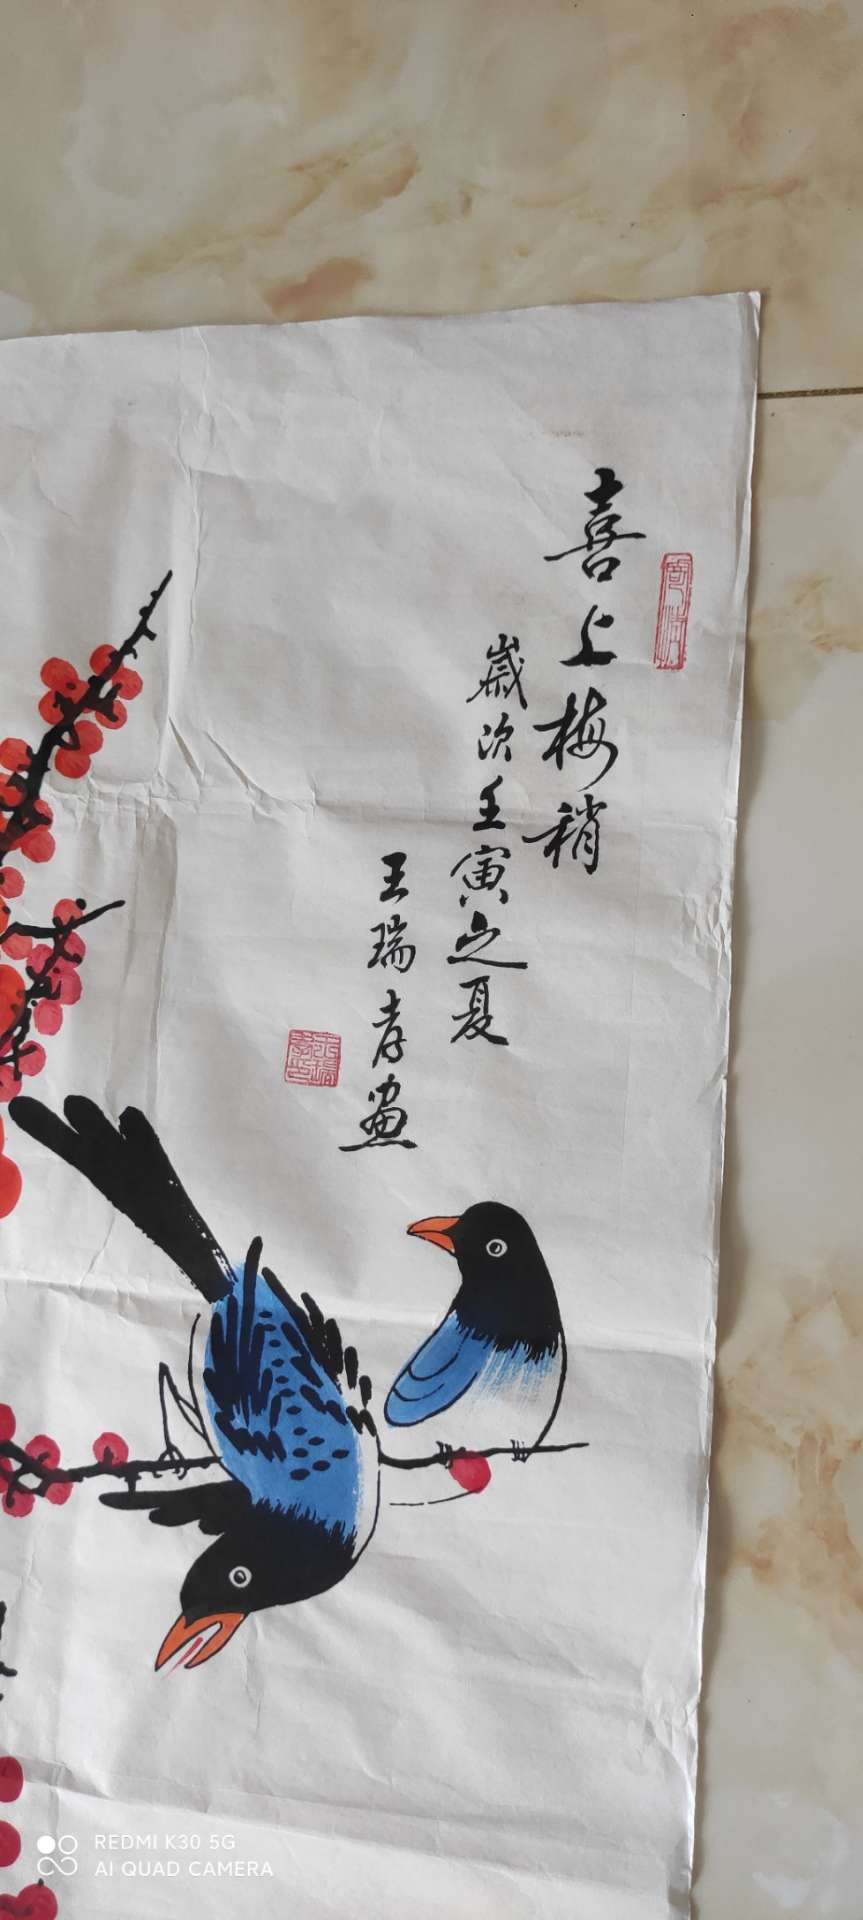 喜上梅稍
歲次壬寅之夏
王瑞孝畫
REDMI K30 5G
AI QUAD CAMERA